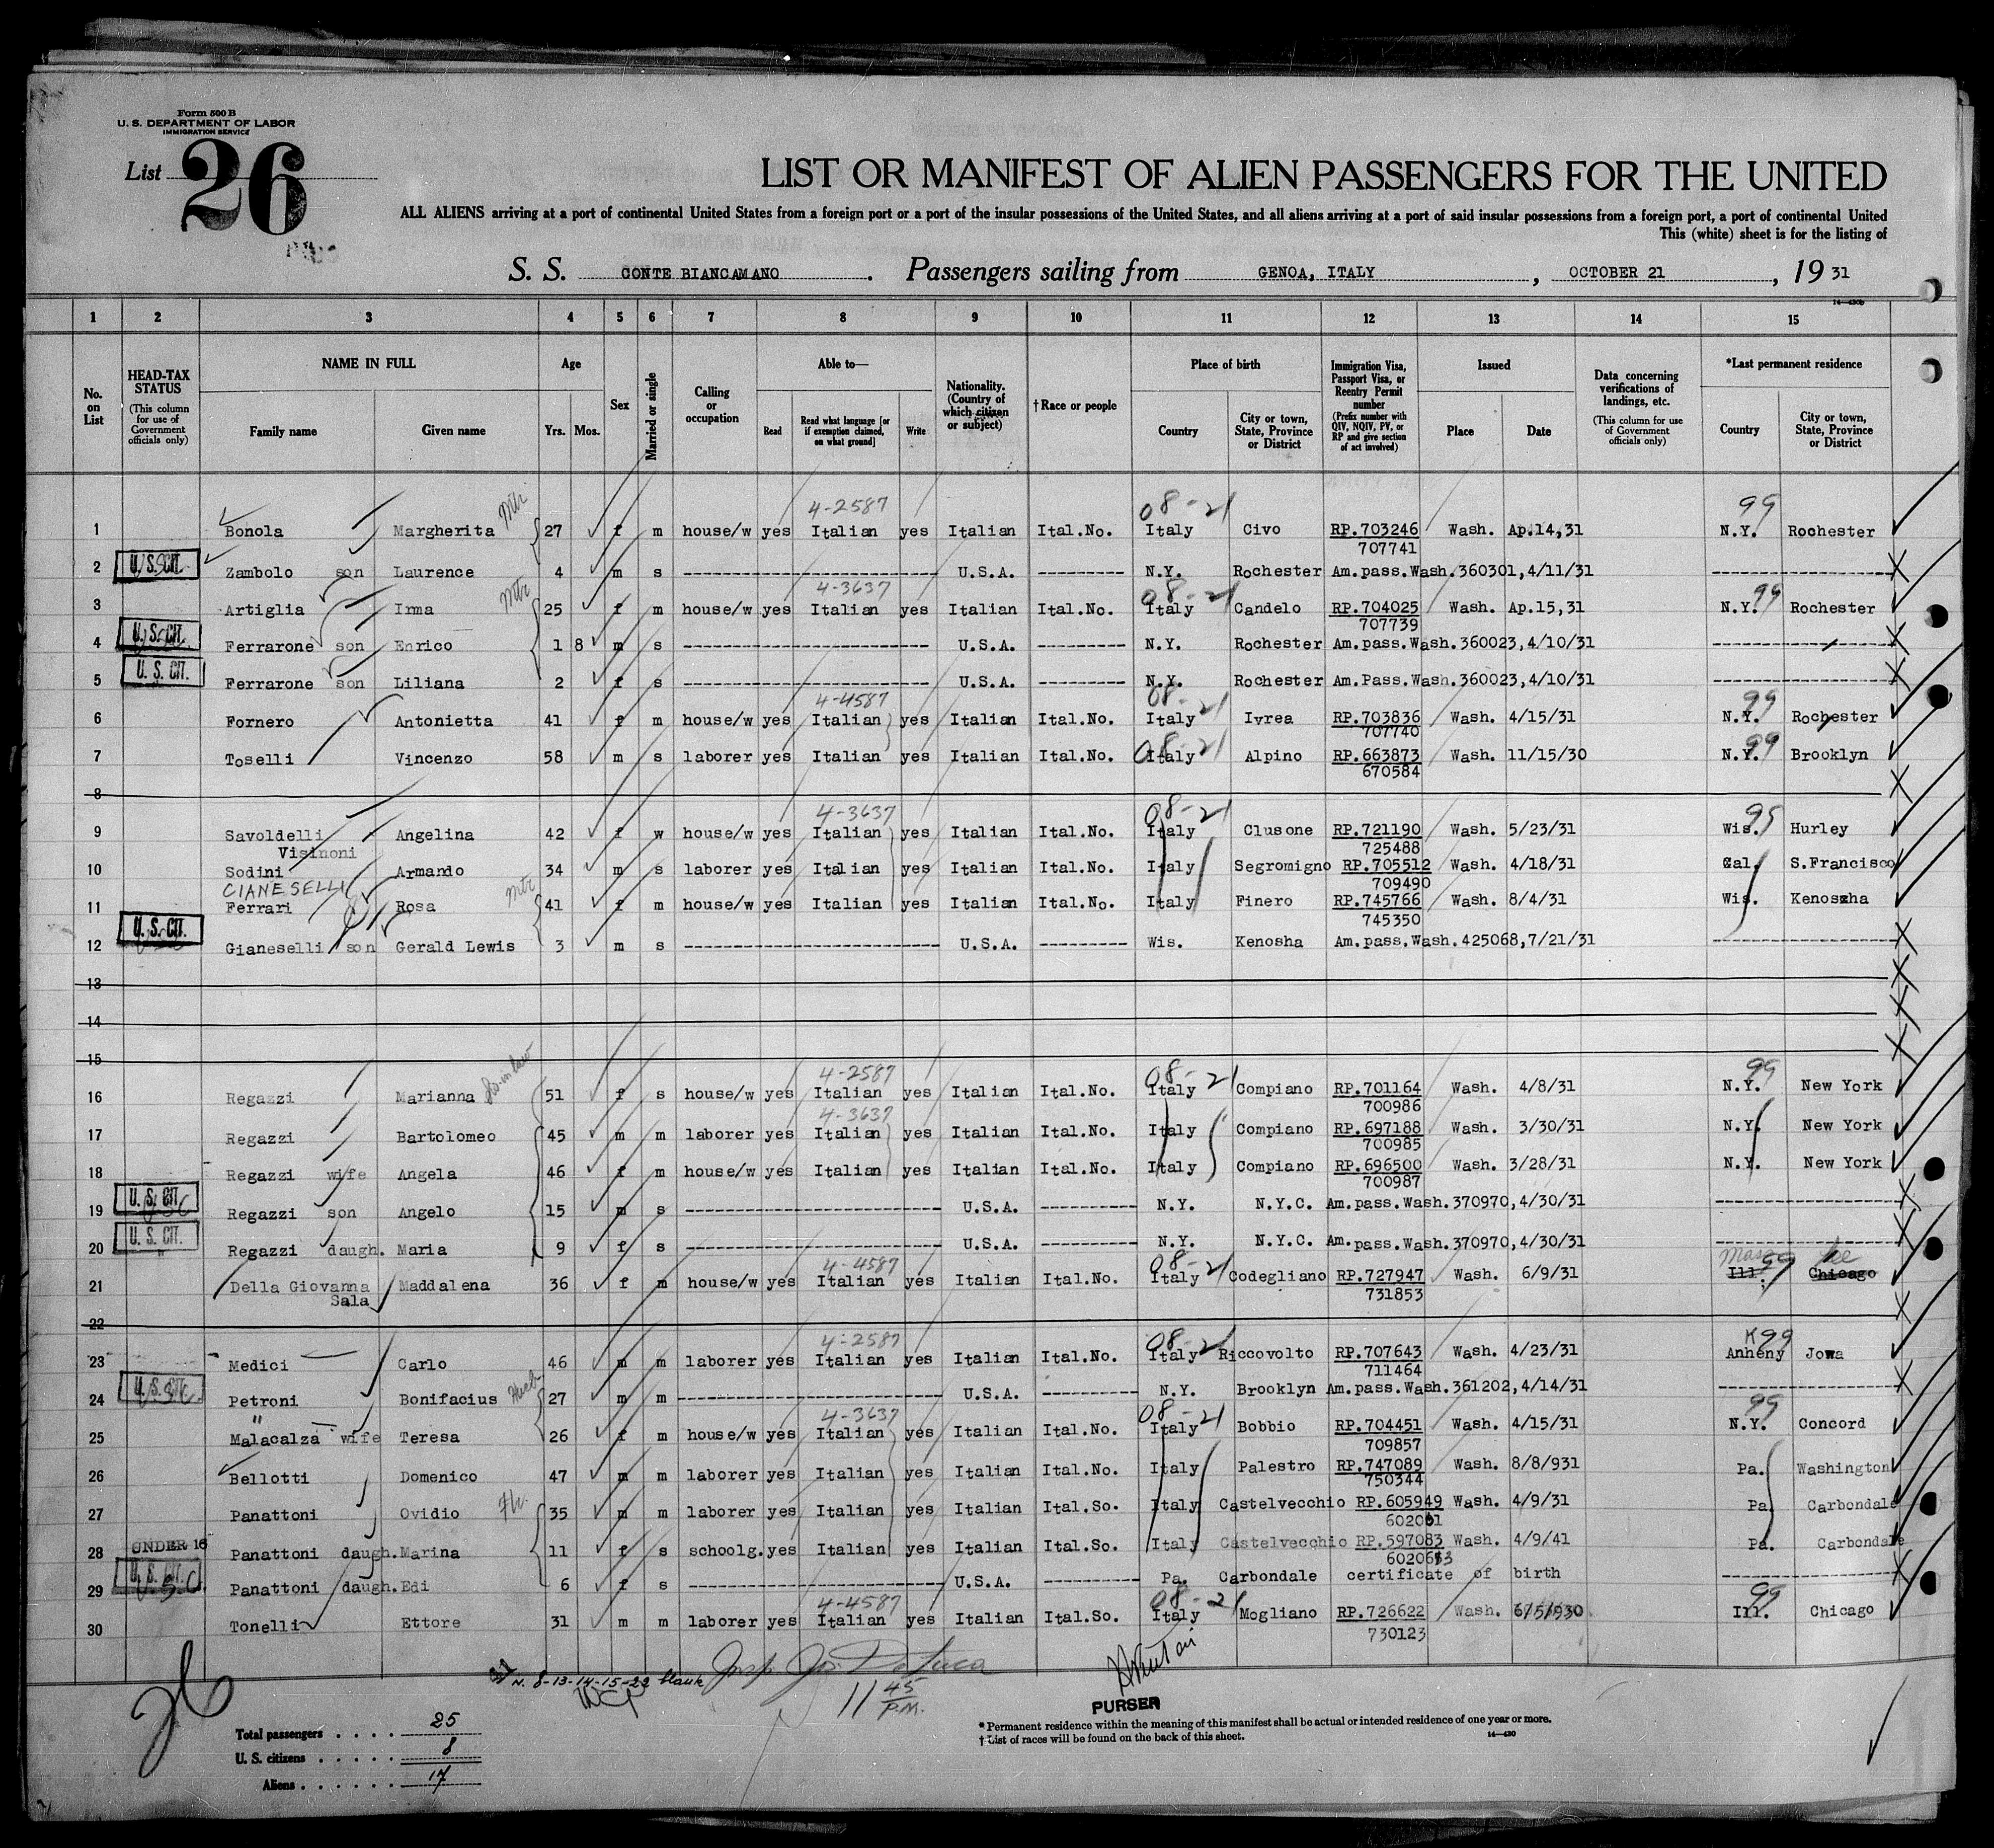 Form 500 B
U. S. DEPARTMENT OF LABOR
IMMIGRATION SERVICE
List 26
LIST OR MANIFEST OF ALIEN PASSENGERS FOR THE UNITED
ALL ALIENS arriving at a port of continental United States from a foreign port or a port of the insular possessions of the United States, and all aliens arriving at a port of said insular possessions from a foreign port, a port of continental United
This (white) sheet is for the listing of
S. S. CONTE BIANCAMANO. Passengers sailing from GENOA, ITALY, OCTOBER 21, 19 31
1 2 3 4 5 6 7 8 9 10 11 12 13 14 15
No. on List
HEAD-TAX STATUS (This column for use of Government officials only)
NAME IN FULL Family name Given name
Age Yrs. Mos.
Sex
Married or single
Calling or occupation
Able to— Read Read what language [or if exemption claimed, on what ground] Write
Nationality. (Country of which citizen or subject)
† Race or people
Place of birth Country City or town, State, Province or District
Immigration Visa, Passport Visa, or Reentry Permit number (Prefix number with QIV, NQIV, PV, or RP and give section of act involved)
Issued Place Date
Data concerning verifications of landings, etc. (This column for use of Government officials only)
*Last permanent residence Country City or town, State, Province or District
4-2587 08-21 99
1 Bonola Margherita Mtr 27 f m house/w yes Italian yes Italian Ital.No. Italy Civo RP.703246 Wash. Ap.14,31 N.Y. Rochester
707741
2 U. S. CIT. Zambolo son Laurence 4 m s U.S.A. N.Y. Rochester Am.pass.Wash.360301,4/11/31
4-3637 08-21 99
3 Artiglia Irma Mtr 25 f m house/w yes Italian yes Italian Ital.No. Italy Candelo RP.704025 Wash. Ap.15,31 N.Y. Rochester
707739
4 U. S. CIT. Ferrarone son Enrico 1 8 m s U.S.A. N.Y. Rochester Am.pass.Wash.360023,4/10/31
5 U. S. CIT. Ferrarone son Liliana 2 f s U.S.A. N.Y. Rochester Am.Pass.Wash.360023,4/10/31
4-4587 08-21 99
6 Fornero Antonietta 41 f m house/w yes Italian yes Italian Ital.No. Italy Ivrea RP.703836 Wash. 4/15/31 N.Y. Rochester
707740
7 Toselli Vincenzo 58 m s laborer yes Italian yes Italian Ital.No. Italy 08-21 Alpino RP.663873 Wash. 11/15/30 N.Y. 99 Brooklyn
670584
8
4-3637 08-21 95
9 Savoldelli Angelina 42 f w house/w yes Italian yes Italian Ital.No. Italy Clusone RP.721190 Wash. 5/23/31 Wis. Hurley
Visinoni 725488
10 Sodini Armando 34 m s laborer yes Italian yes Italian Ital.No. Italy Segromigno RP.705512 Wash. 4/18/31 Cal. S.Francisco
CIANESELLI 709490
11 Ferrari Rosa Mtr 41 f m house/w yes Italian yes Italian Ital.No. Italy Finero RP.745766 Wash. 8/4/31 Wis. Kenoszha
745350
12 U. S. CIT. Gianeselli son Gerald Lewis 3 m s U.S.A. Wis. Kenosha Am.pass.Wash.425068,7/21/31
13
14
15
4-2587 08-21 99
16 Regazzi Marianna 51 f s house/w yes Italian yes Italian Ital.No. Italy Compiano RP.701164 Wash. 4/8/31 N.Y. New York
4-3637 700986
17 Regazzi Bartolomeo 45 m m laborer yes Italian yes Italian Ital.No. Italy Compiano RP.697188 Wash. 3/30/31 N.Y. New York
700985
18 Regazzi wife Angela 46 f m house/w yes Italian yes Italian Ital.No. Italy Compiano RP.696500 Wash. 3/28/31 N.Y. New York
700987
19 U. S. CIT. Regazzi son Angelo 15 m s U.S.A. N.Y. N.Y.C. Am.pass.Wash.370970,4/30/31
20 U. S. CIT. Regazzi daugh. Maria 9 f s U.S.A. N.Y. N.Y.C. Am.pass.Wash.370970,4/30/31
4-4587 08-21 Mass 99 Lee
21 Della Giovanna Maddalena 36 f m house/w yes Italian yes Italian Ital.No. Italy Codegliano RP.727947 Wash. 6/9/31 Ill. Chicago
Sala 731853
22
4-2587 08-21 K99
23 Medici Carlo 46 m m laborer yes Italian yes Italian Ital.No. Italy Riccovolto RP.707643 Wash. 4/23/31 Anheny Jowa
711464
24 U. S. CIT. Petroni Bonifacius 27 m m U.S.A. N.Y. Brooklyn Am.pass.Wash.361202,4/14/31
" 4-3637 08-21 99
25 Malacalza wife Teresa 26 f m house/w yes Italian yes Italian Ital.No. Italy Bobbio RP.704451 Wash. 4/15/31 N.Y. Concord
709857
26 Bellotti Domenico 47 m m laborer yes Italian yes Italian Ital.No. Italy Palestro RP.747089 Wash. 8/8/931 Pa. Washington
750344
27 Panattoni Ovidio Fh. 35 m m laborer yes Italian yes Italian Ital.So. Italy Castelvecchio RP.605949 Wash. 4/9/31 Pa. Carbondale
28 UNDER 16 Panattoni daugh. Marina 11 f s schoolg. yes Italian yes Italian Ital.So. Italy Castelvecchio RP.597083 Wash. 4/9/41 Pa. Carbondale
29 U. S. CIT. Panattoni daugh. Edi 6 f s U.S.A. Pa. Carbondale certificate of birth
4-4587 08-21 99
30 Tonelli Ettore 31 m m laborer yes Italian yes Italian Ital.So. Italy Mogliano RP.726622 Wash. 6/5/930 Ill. Chicago
730123
N. 8-13-14-15-22 blank
Insp. Jos. DeLuca
11 45 P.M.
PURSER
Total passengers . . . . . 25
U. S. citizens . . . . . 8
Aliens . . . . . . 17
* Permanent residence within the meaning of this manifest shall be actual or intended residence of one year or more.
† List of races will be found on the back of this sheet.
14—430